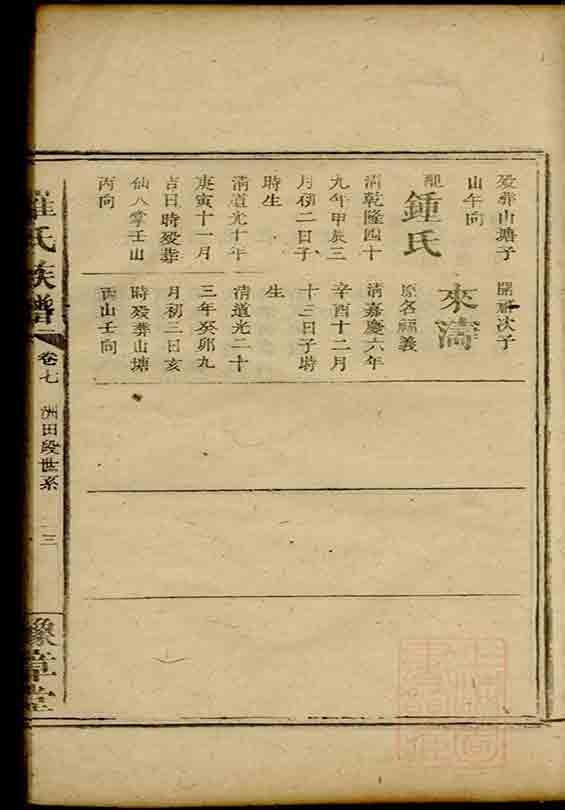 歿葬山塘子
山午向
配
鍾氏
清乾隆四十
九年甲辰三
月初二日子
時生
清道光十年
庚寅十一月
吉日時歿葬
仙八掌壬山
丙向
開次子
來濤
原名福義
清嘉慶六年
辛酉十二月
十三日子時
生
清道光二十
三年癸卯九
月初三日亥
時歿葬山塘
丙山壬向
羅氏族譜
卷七
洲田段世系
豫章堂